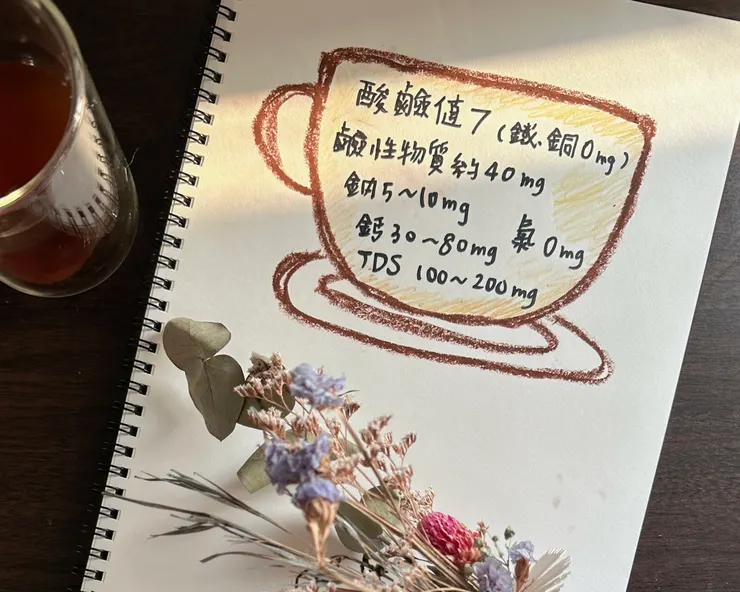 酸鹼值7 (鐵、銅0mg)
鹼性物質約40mg
鈉5~10mg
鈣30~80mg 氯0mg
TDS 100~200mg